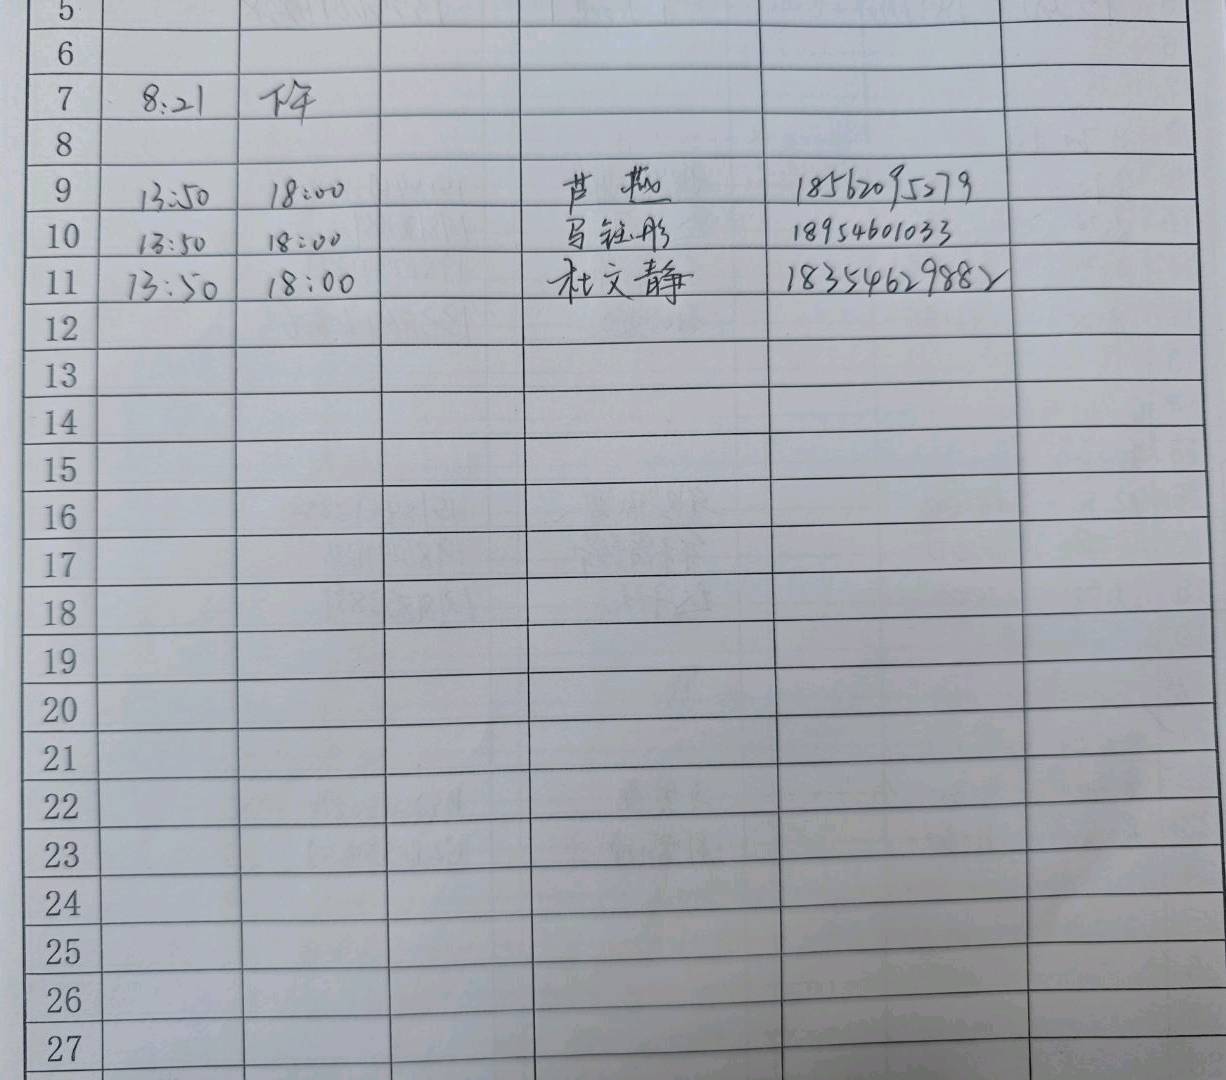 5
6
7 8:21 下午
8
9 13:50 18:00 芦 18562095279
10 13:50 18:00 马钰彤 18954601033
11 13:50 18:00 杜文静 18354629882
12
13
14
15
16
17
18
19
20
21
22
23
24
25
26
27